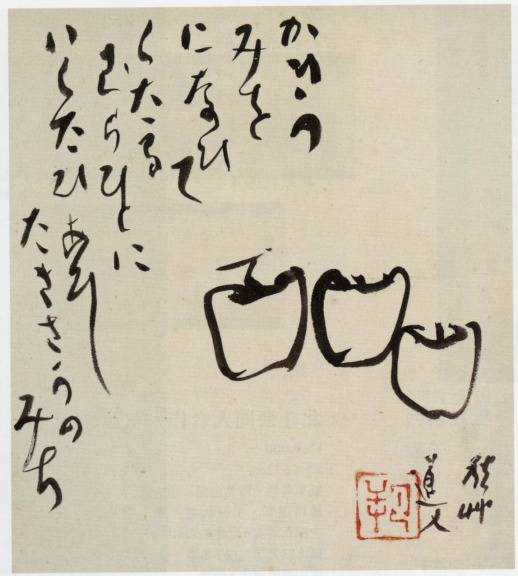 かきの
みを
になひて
くたる
むらひとに
いくたひあひし
たきさかのみち
秋艸
道人